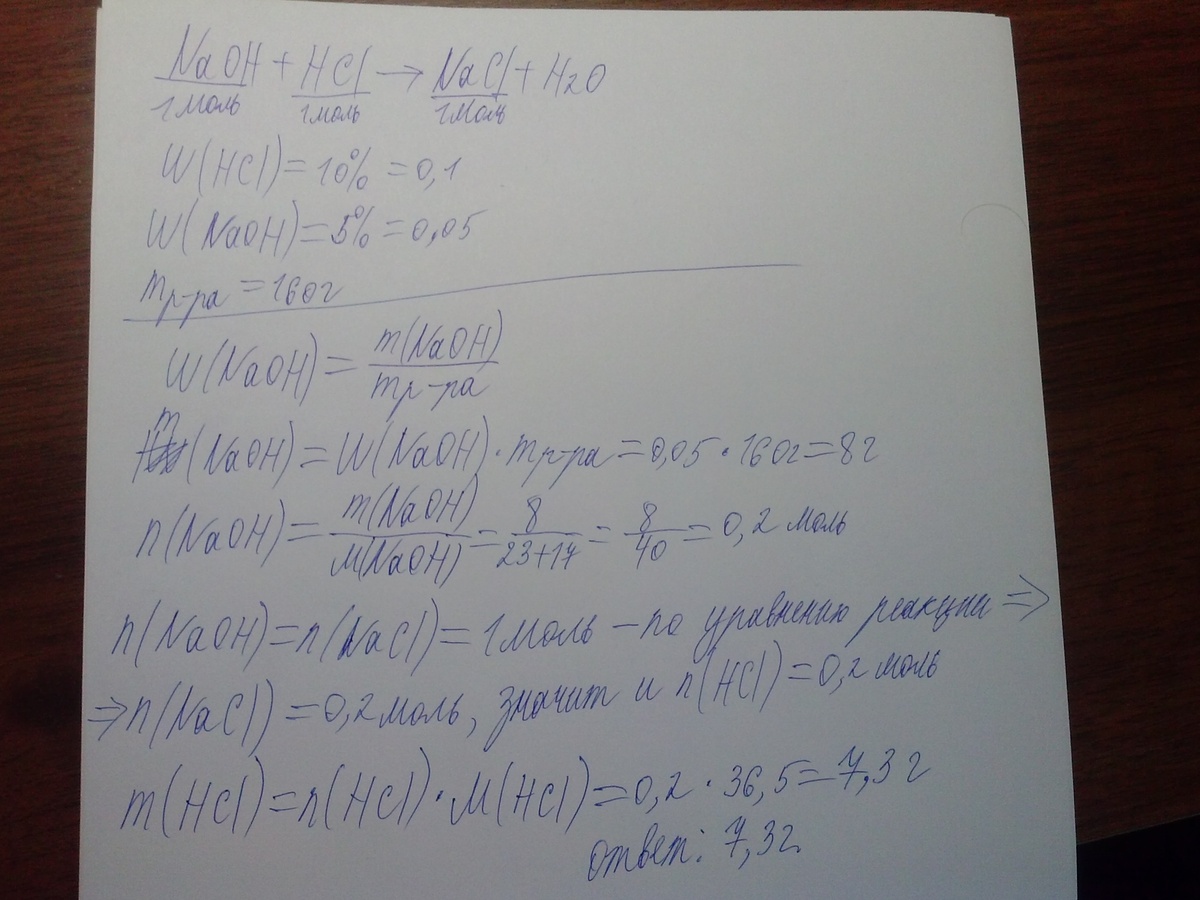 NaOH + HCl → NaCl + H2O
1моль 1моль 1моль
W(HCl) = 10% = 0,1
W(NaOH) = 5% = 0,05
mр-ра = 160г
W(NaOH) = m(NaOH) / mр-ра
m(NaOH) = W(NaOH) · mр-ра = 0,05 · 160г = 8г
n(NaOH) = m(NaOH) / M(NaOH) = 8 / 23+17 = 8 / 40 = 0,2 моль
n(NaOH) = n(NaCl) = 1моль – по уравнению реакции ⇒
⇒ n(NaCl) = 0,2 моль, значит и n(HCl) = 0,2 моль
m(HCl) = n(HCl) · M(HCl) = 0,2 · 36,5 = 7,3 г
ответ: 7,3г.